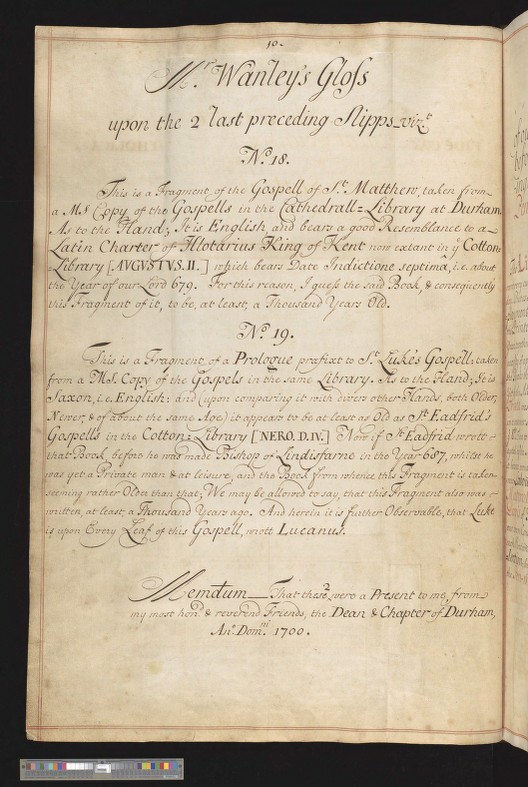 10.
Mr. Wanley's Gloss
upon the 2 last preceding Slipps vizt.
No. 18.
This is a Fragment of the Gospell of St. Matthew, taken from
a MS Copy of the Gospells in the Cathedrall=Library at Durham.
As to the Hand; It is English, and bears a good Resemblance to a
Latin Charter of Hlotarius King of Kent now extant in ye Cotton=
Library [AVGVSTVS. II. ] which bears Date Indictione septimâ, i.e. about
the Year of our Lord 679. For this reason, I guess the said Book, & consequently
this Fragment of it, to be, at least, a Thousand Years Old.
No. 19.
This is a Fragment of a Prologue prefixt to St. Luke's Gospell: taken
from a MS. Copy of the Gospels in the same Library. As to the Hand; It is
Saxon, i.e. English: and (upon comparing it with divers other Hands, both Older,
Newer, & of about the same Age) it appears to be at least as Old as St. Eadfrid's
Gospells in the Cotton=Library [NERO. D.IV.] Now if St. Eadfrid wrote
that Book, before he was made Bishop of Lindisfarne in the Year 687, whilst he
was yet a Private man & at leisure, and the Book from whence this Fragment is taken
seeming rather Older than that; We may be allowed to say, that this Fragment also was
written, at least, a Thousand Years ago. And herein it is further Observable, that Luke
is upon Every Leaf of this Gospell, wrote Lucanus.
Memdum That these 2 were a Present to me, from
my most hond. & reverend Friends, the Dean & Chapter of Durham,
Ano. Domni. 1700.